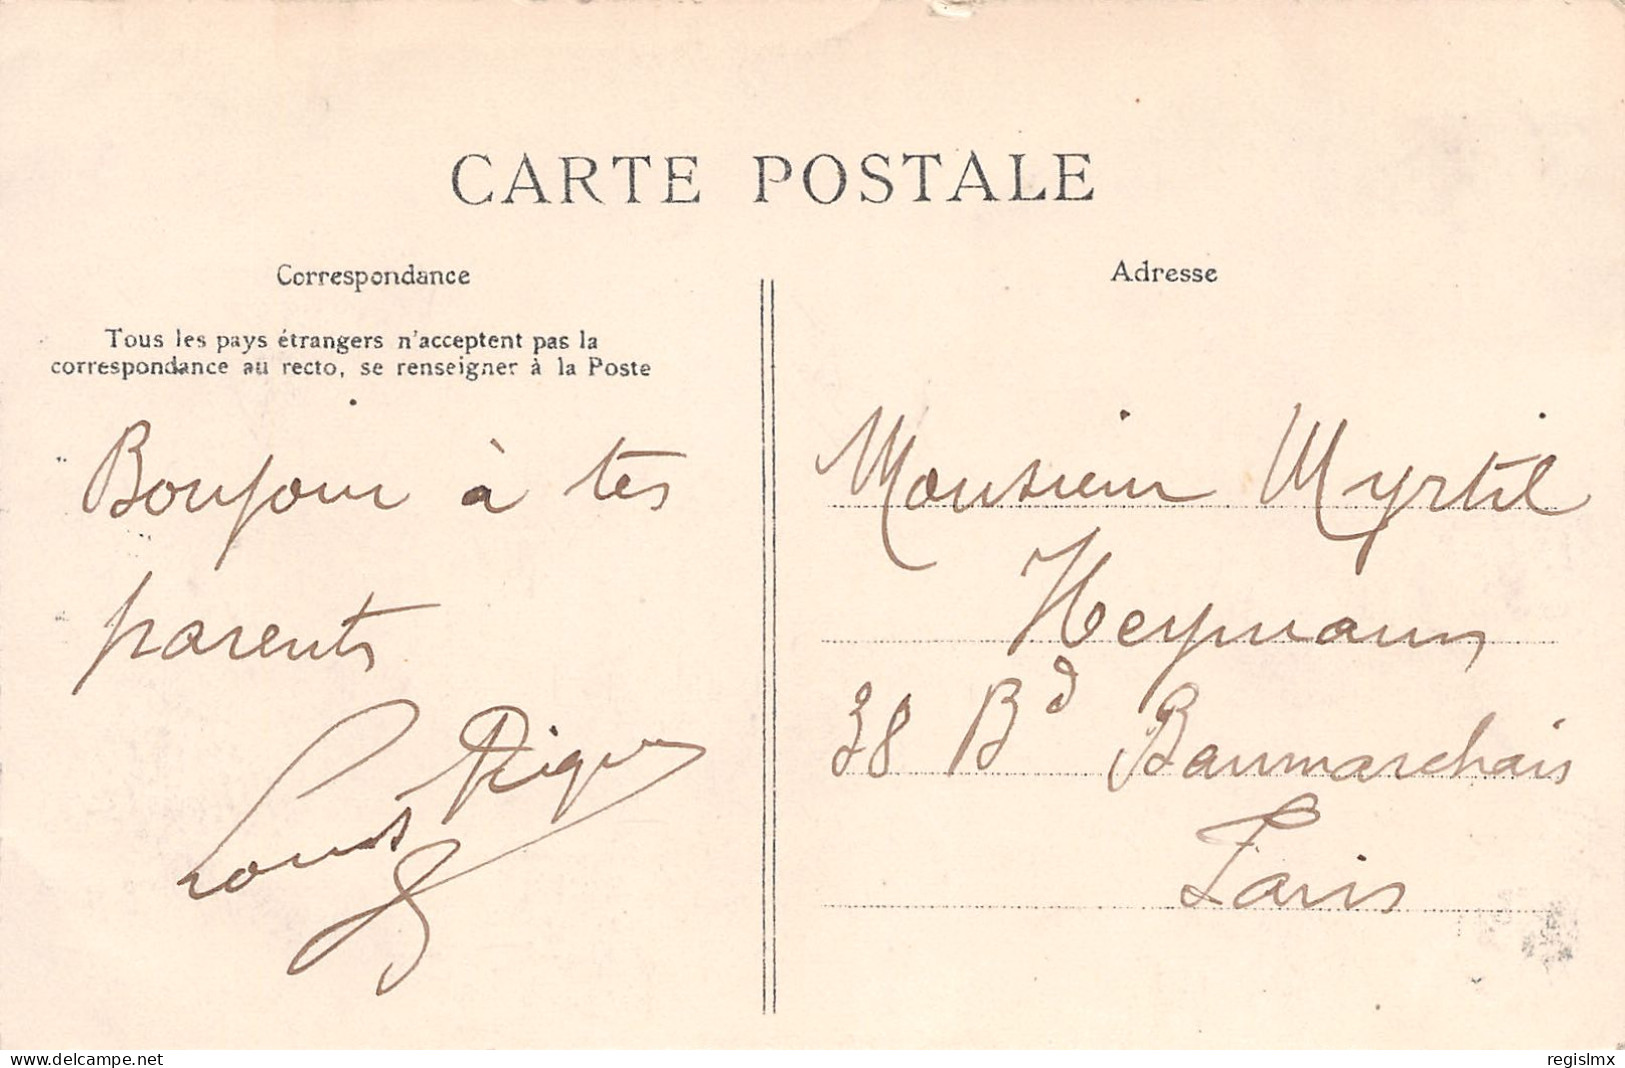 CARTE POSTALE
Correspondance
Tous les pays étrangers n'acceptent pas la
correspondance au recto, se renseigner à la Poste
Bonjour à tes
parents
Louis
Adresse
Monsieur Myrtil
Heymann
38 Bd Baumarchais
Paris
www.delcampe.net
regislmx